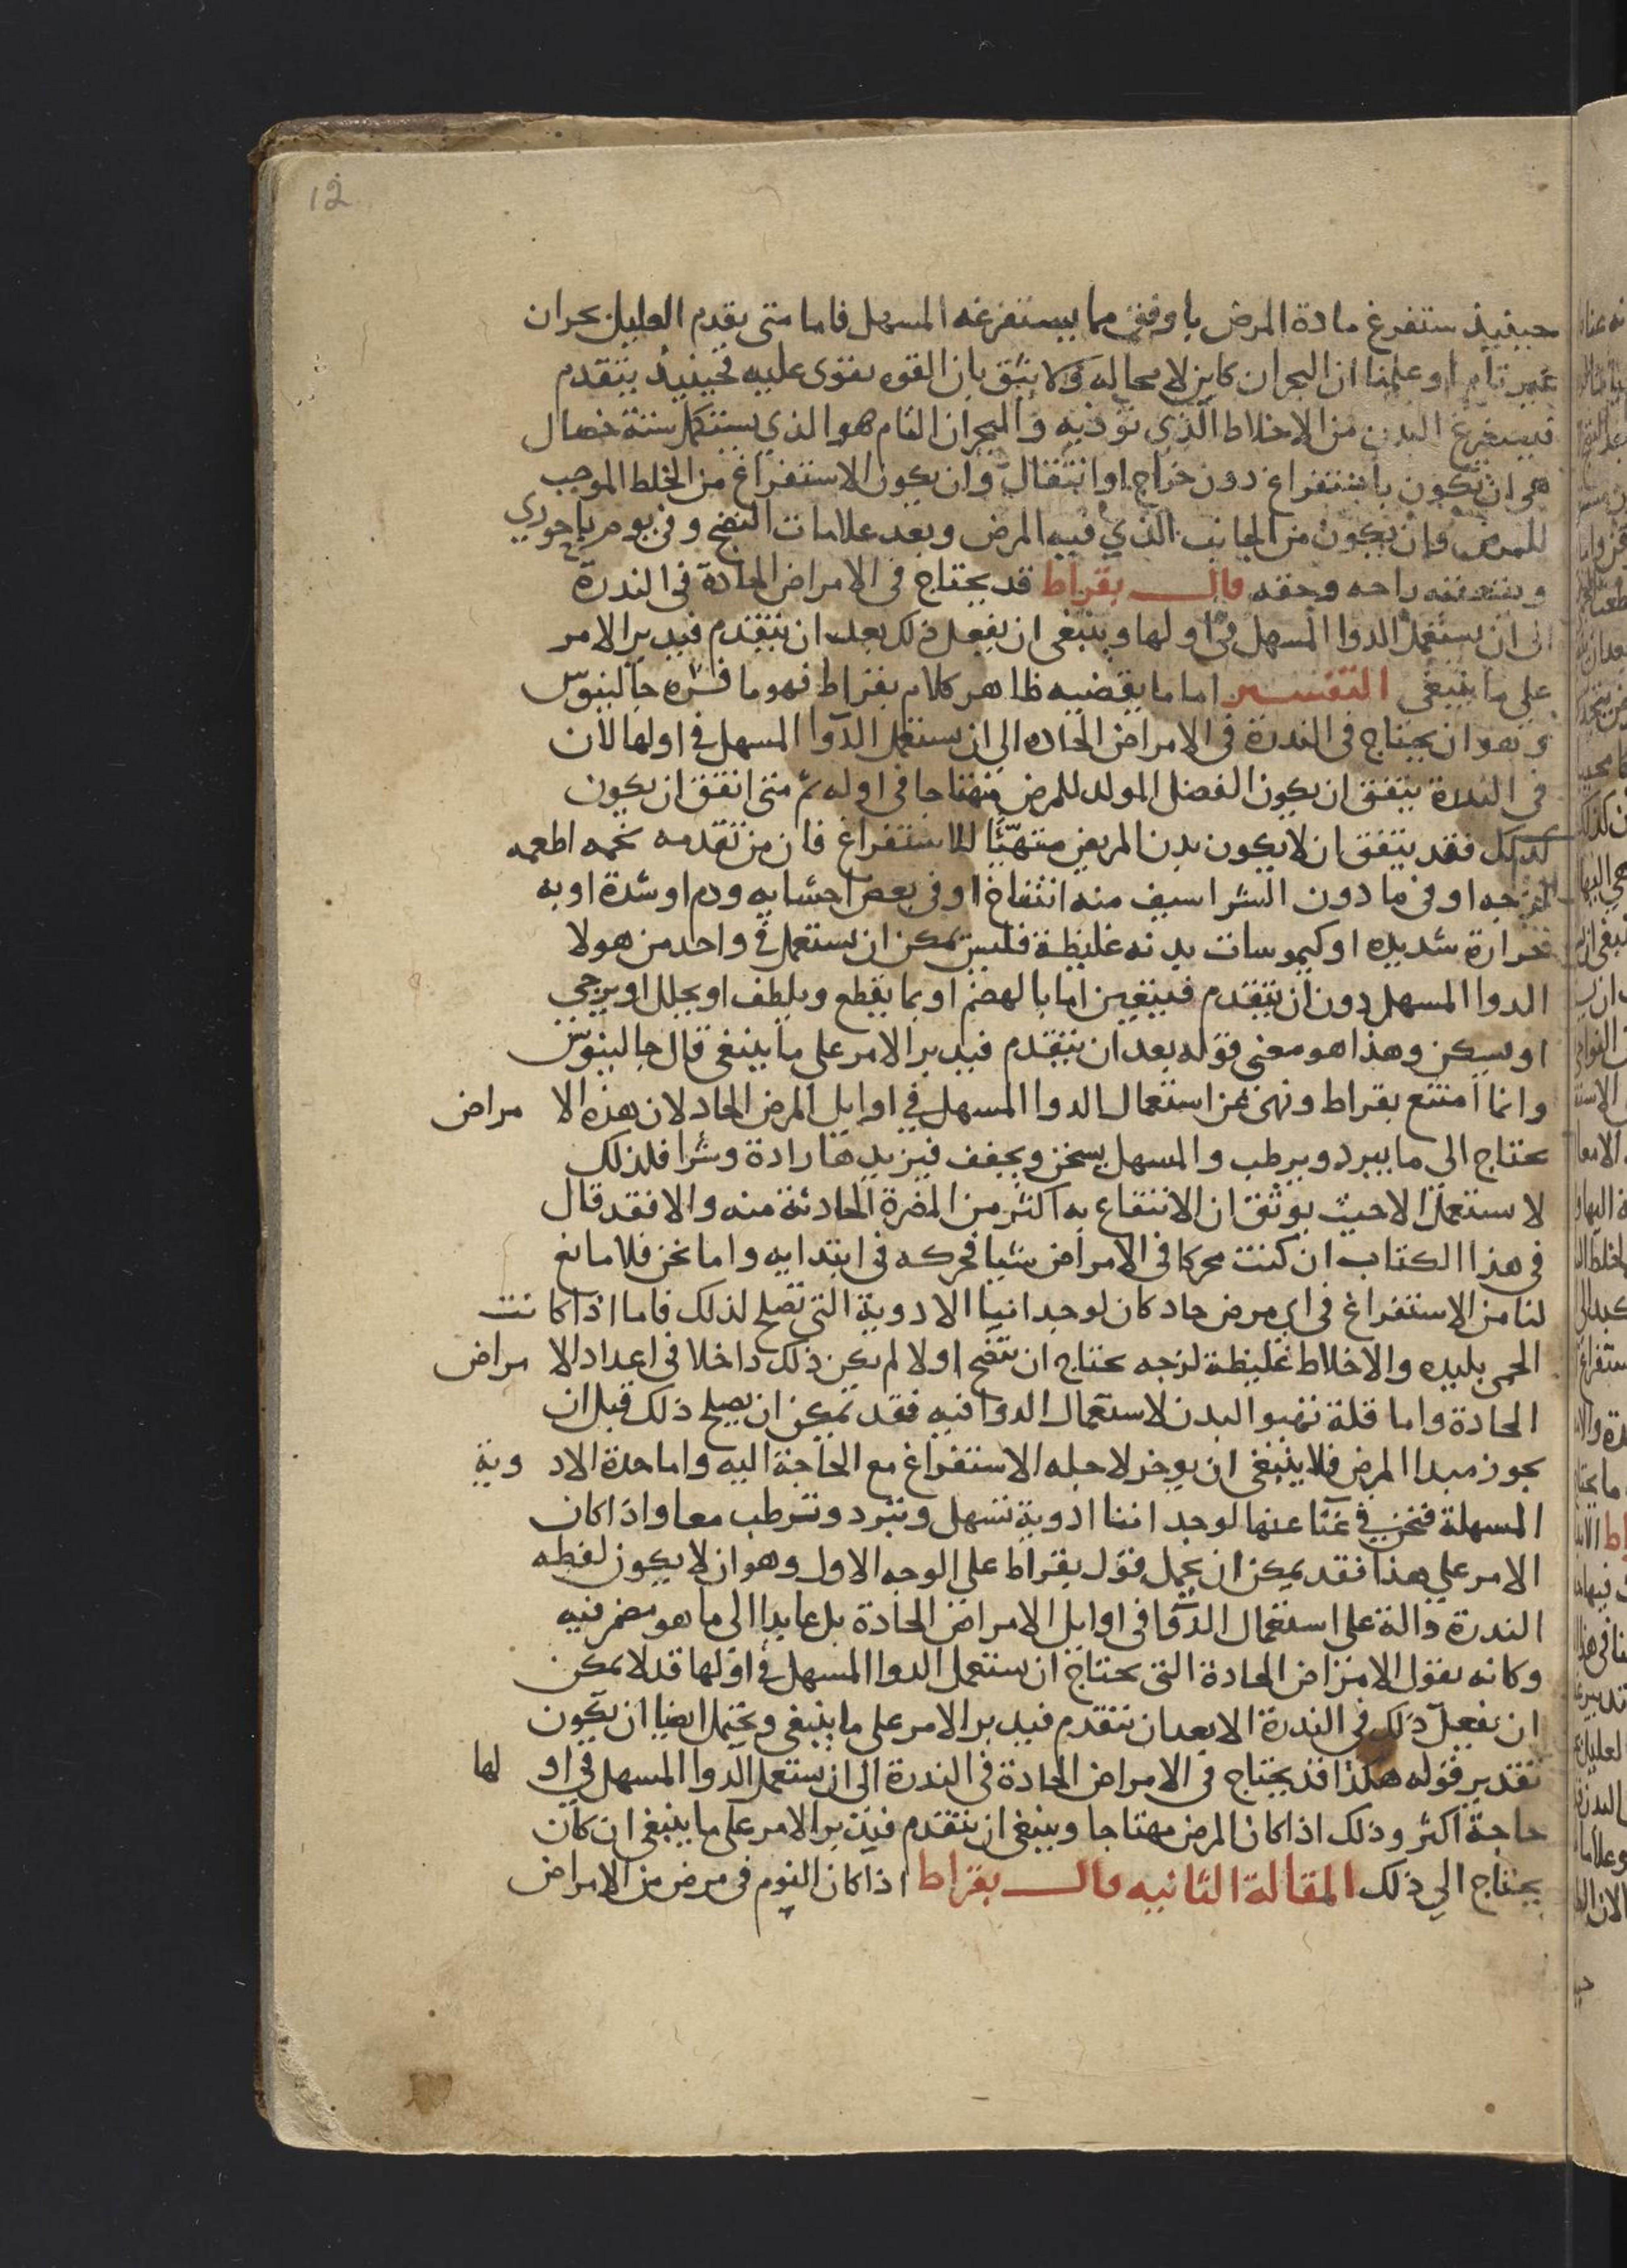 12
حينيذ ستفرغ مادة المرض باوفق مما يستفرغه المسهل فاما متى يقدم العليل بحران
غير تام او علمنا ان البحران كاين لا محاله ولا يثق بان القوه تقوى عليه فحينيذ يتقدم
فيستفرغ البدن من الاخلاط الذي توذيه والبحران التام هو الذي يستكمل ستة خصال
هي ان تكون باستفراغ دون خراج او انتقال وان يكون الاستفراغ من الخلط الموجب
للمرض وان يكون من الجانب الذي فيه المرض وبعد علامات النضج وفي يوم باحوري
ويتعقبه راحه وخفه قال بقراط قد يحتاج في الامراض الحادة في الندرة
الى ان يستعمل الدوا المسهل في اولها وينبغي ان يفعل ذلك بعد ان يتقدم فيدبر الامر
على ما ينبغي التفسير اما ما يقضيه ظاهر كلام بقراط فهو ما فسره جالينوس
وهو ان يحتاج في الندرة في الامراض الحاده الى ان يستعمل الدوا المسهل في اولها لان
في الندرة يتفق ان يكون الفضل المولد للمرض مهتاجا في اوله ثم متى اتفق ان يكون
كذلك فقد يتفق ان لا يكون بدن المريض متهيّئا للاستفراغ فان من تقدمه تخمه اطعمه
لزجه او في ما دون الشراسيف منه انتفاخ او في بعض احشايه ورم او شدة او به
حرارة شديده او كيموسات بدنه غليظة فليس يمكن ان يستعمل في واحد من هولا
الدوا المسهل دون ان يتقدم فينقين اما بالهضم او بما يقطع ويلطف او يحلل او يرخي
او يسكن وهذا هو معنى قوله بعد ان يتقدم فيدبر الامر على ما ينبغي قال جالينوس
وانما امتنع بقراط ونهى عن استعمال الدوا المسهل في اوايل المرض الحاد لان هذه الا مراض
تحتاج الى ما يبرد ويرطب والمسهل يسخن ويجفف فيزيدها رادة وشرا فلذلك
لا ستعمل الا حيث يوثق ان الانتفاع به اكثر من المضرة الحادثة منه والا فقد قال
في هذا الكتاب ان كنت محركا في الامراض شيا فحركه في ابتدايه واما نحن فلا مانع
لنا من الاستفراغ في اي مرض حاد كان لوجداننا الادوية التي تصلح لذلك فاما اذا كانت
الحمى بليده والاخلاط غليظة لزجه تحتاج ان تنضج اولا لم يكن ذلك داخلا في اعداد الا مراض
الحادة واما قلة تهيو البدن لاستعمال الدوا فيه فقد يمكن ان يصلح ذلك قبل ان
يجوز مبدا المرض فلا ينبغي ان يوخر لاجله الاستفراغ مع الحاجة اليه واما حدة الاد وية
المسهلة فنحن في غنا عنها لوجداننا ادوية تسهل وتبرد وترطب معا واذا كان
الامر على هذا فقد يمكن ان يحمل قول بقراط على الوجه الاول وهو ان لا يكون لفظه
الندرة دالة على استعمال الدوا في اوايل الامراض الحادة بل عايدا الى ما هو مضمر فيه
وكانه يقول الامراض الحادة التي يحتاج ان ستعمل الدوا المسهل في اولها قد لا يمكن
ان يفعل ذلك في الندرة الا بعد ان تتقدم فيدبر الامر على ما ينبغي ويحتمل ايضا ان يكون
تقدير قوله هكذا قد يحتاج في الامراض الحادة في الندرة الى ان ستعمل الدوا المسهل في او لها
حاجة اكثر وذلك اذا كان المرض مهتاجا وينبغي ان يتقدم فيدبر الامر على ما ينبغي ان كان
يحتاج الى ذلك المقالة الثانيه قال بقراط اذا كان النوم في مرض من الامراض